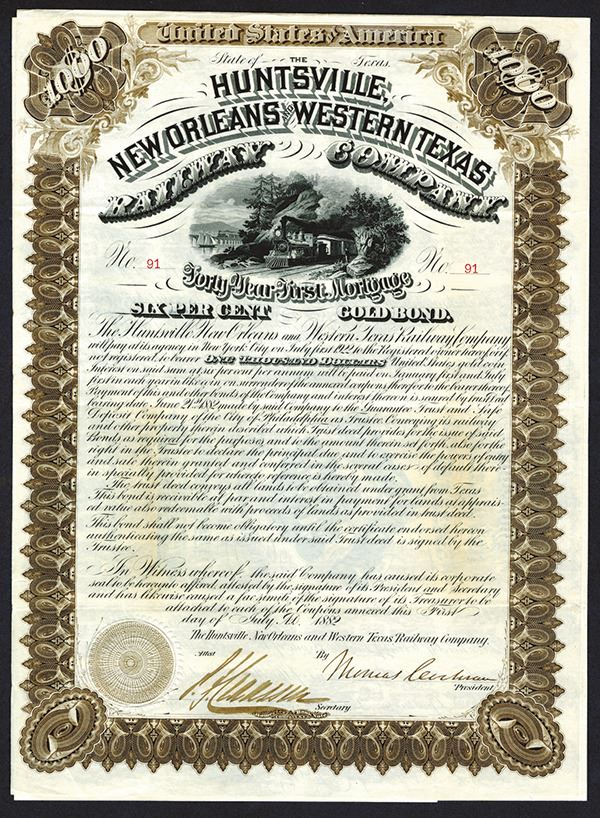 United States of America
$1000
$1000
State of Texas.
THE
HUNTSVILLE,
NEW ORLEANS AND WESTERN TEXAS
RAILWAY COMPANY.
No. 91
No. 91
Forty Year First Mortgage
SIX PER CENT GOLD BOND.
The Huntsville New Orleans and Western Texas Railway Company
will pay at its agency in New York City on July first 1922 to the Registered owner hereof or if
not registered to bearer ONE THOUSAND DOLLARS United States gold coin
Interest on said sum at six per cent per annum will be paid on January first and July
first in each year in like coin on surrender of the annexed coupons therefor to the bearer thereof
Payment of this and other bonds of the Company and interest thereon is secured by trust Deed
bearing date June 21st 1882 made by said Company to the Guarantee Trust and Safe
Deposit Company of the City of Philadelphia as Trustee Conveying its railway
and other property therein described which Trust Deed provides for the issue of said
Bonds as required for the purposes and to the amount therein set forth also for the
right in the Trustee to declare the principal due and to exercise the powers of entry
and sale therein granted and conferred in the several cases of default there-
in specially provided for whereto reference is hereby made.
The trust deed conveys all lands to be obtained under grant from Texas
This bond is receivable at par and interest in payment for lands at apprais-
ed value also redeemable with proceeds of lands as provided in trust deed.
This bond shall not become obligatory until the certificate endorsed hereon
authenticating the same as issued under said Trust deed is signed by the
Trustee.
In Witness whereof, the said Company has caused its corporate
seal to be hereunto affixed attested by the signature of its President and Secretary
and has likewise caused a fac simile of the signature of its Treasurer to be
attached to each of the Coupons annexed this First
day of July A.D. 1882
The Huntsville, New Orleans and Western Texas Railway Company.
Attest
By
President
Secretary